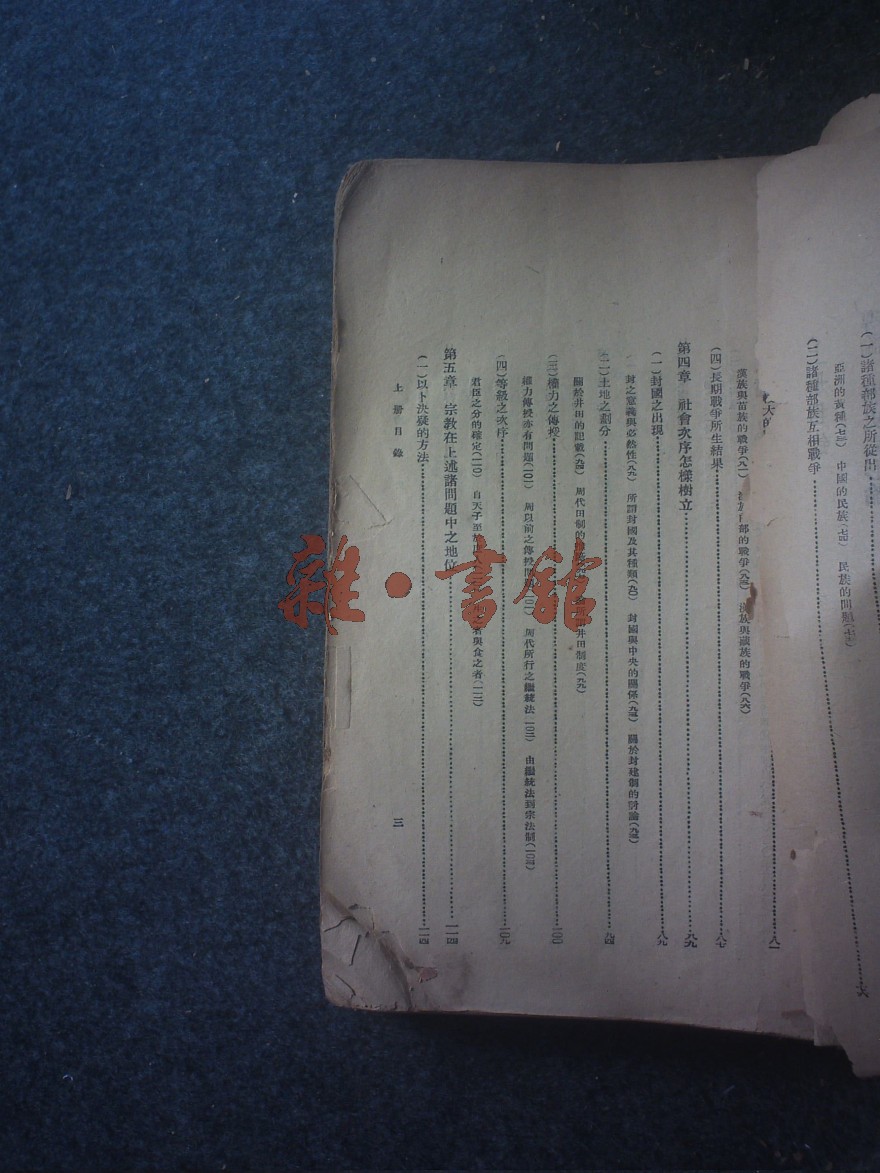 (一)諸種部族之所從出
亞洲的黃種(七三) 中國的民族(七四) 民族的問題
(二)諸種部族互相戰爭
八一
漢族與苗族的戰爭(八一) 部的戰爭 漢族與藏族的戰爭(八六)
(四)長期戰爭所生結果 八七
第四章 社會次序怎樣樹立 八九
(一)封國之出現 八九
封之意義與必然性(八九) 所謂封國及其種類(九〇) 封國與中央的關係(九三) 關於封建制的討論(九三)
(二)土地之劃分 九四
關於井田的記載(九四) 周代田制的 井田制度(九九)
(三)權力之傳授 一〇一
權力傳授亦有問題(一〇一) 周以前之傳授 周代所行之繼統法 一〇三) 由繼統法到宗法制(一〇四)
(四)等級之次序 一〇九
君臣之分的確定(一一〇) 自天子至於 者與食之者(一一二)
第五章 宗教在上述諸問題中之地位 一一四
(一)以卜決疑的方法 一一四
上册目錄
三
雜·書館